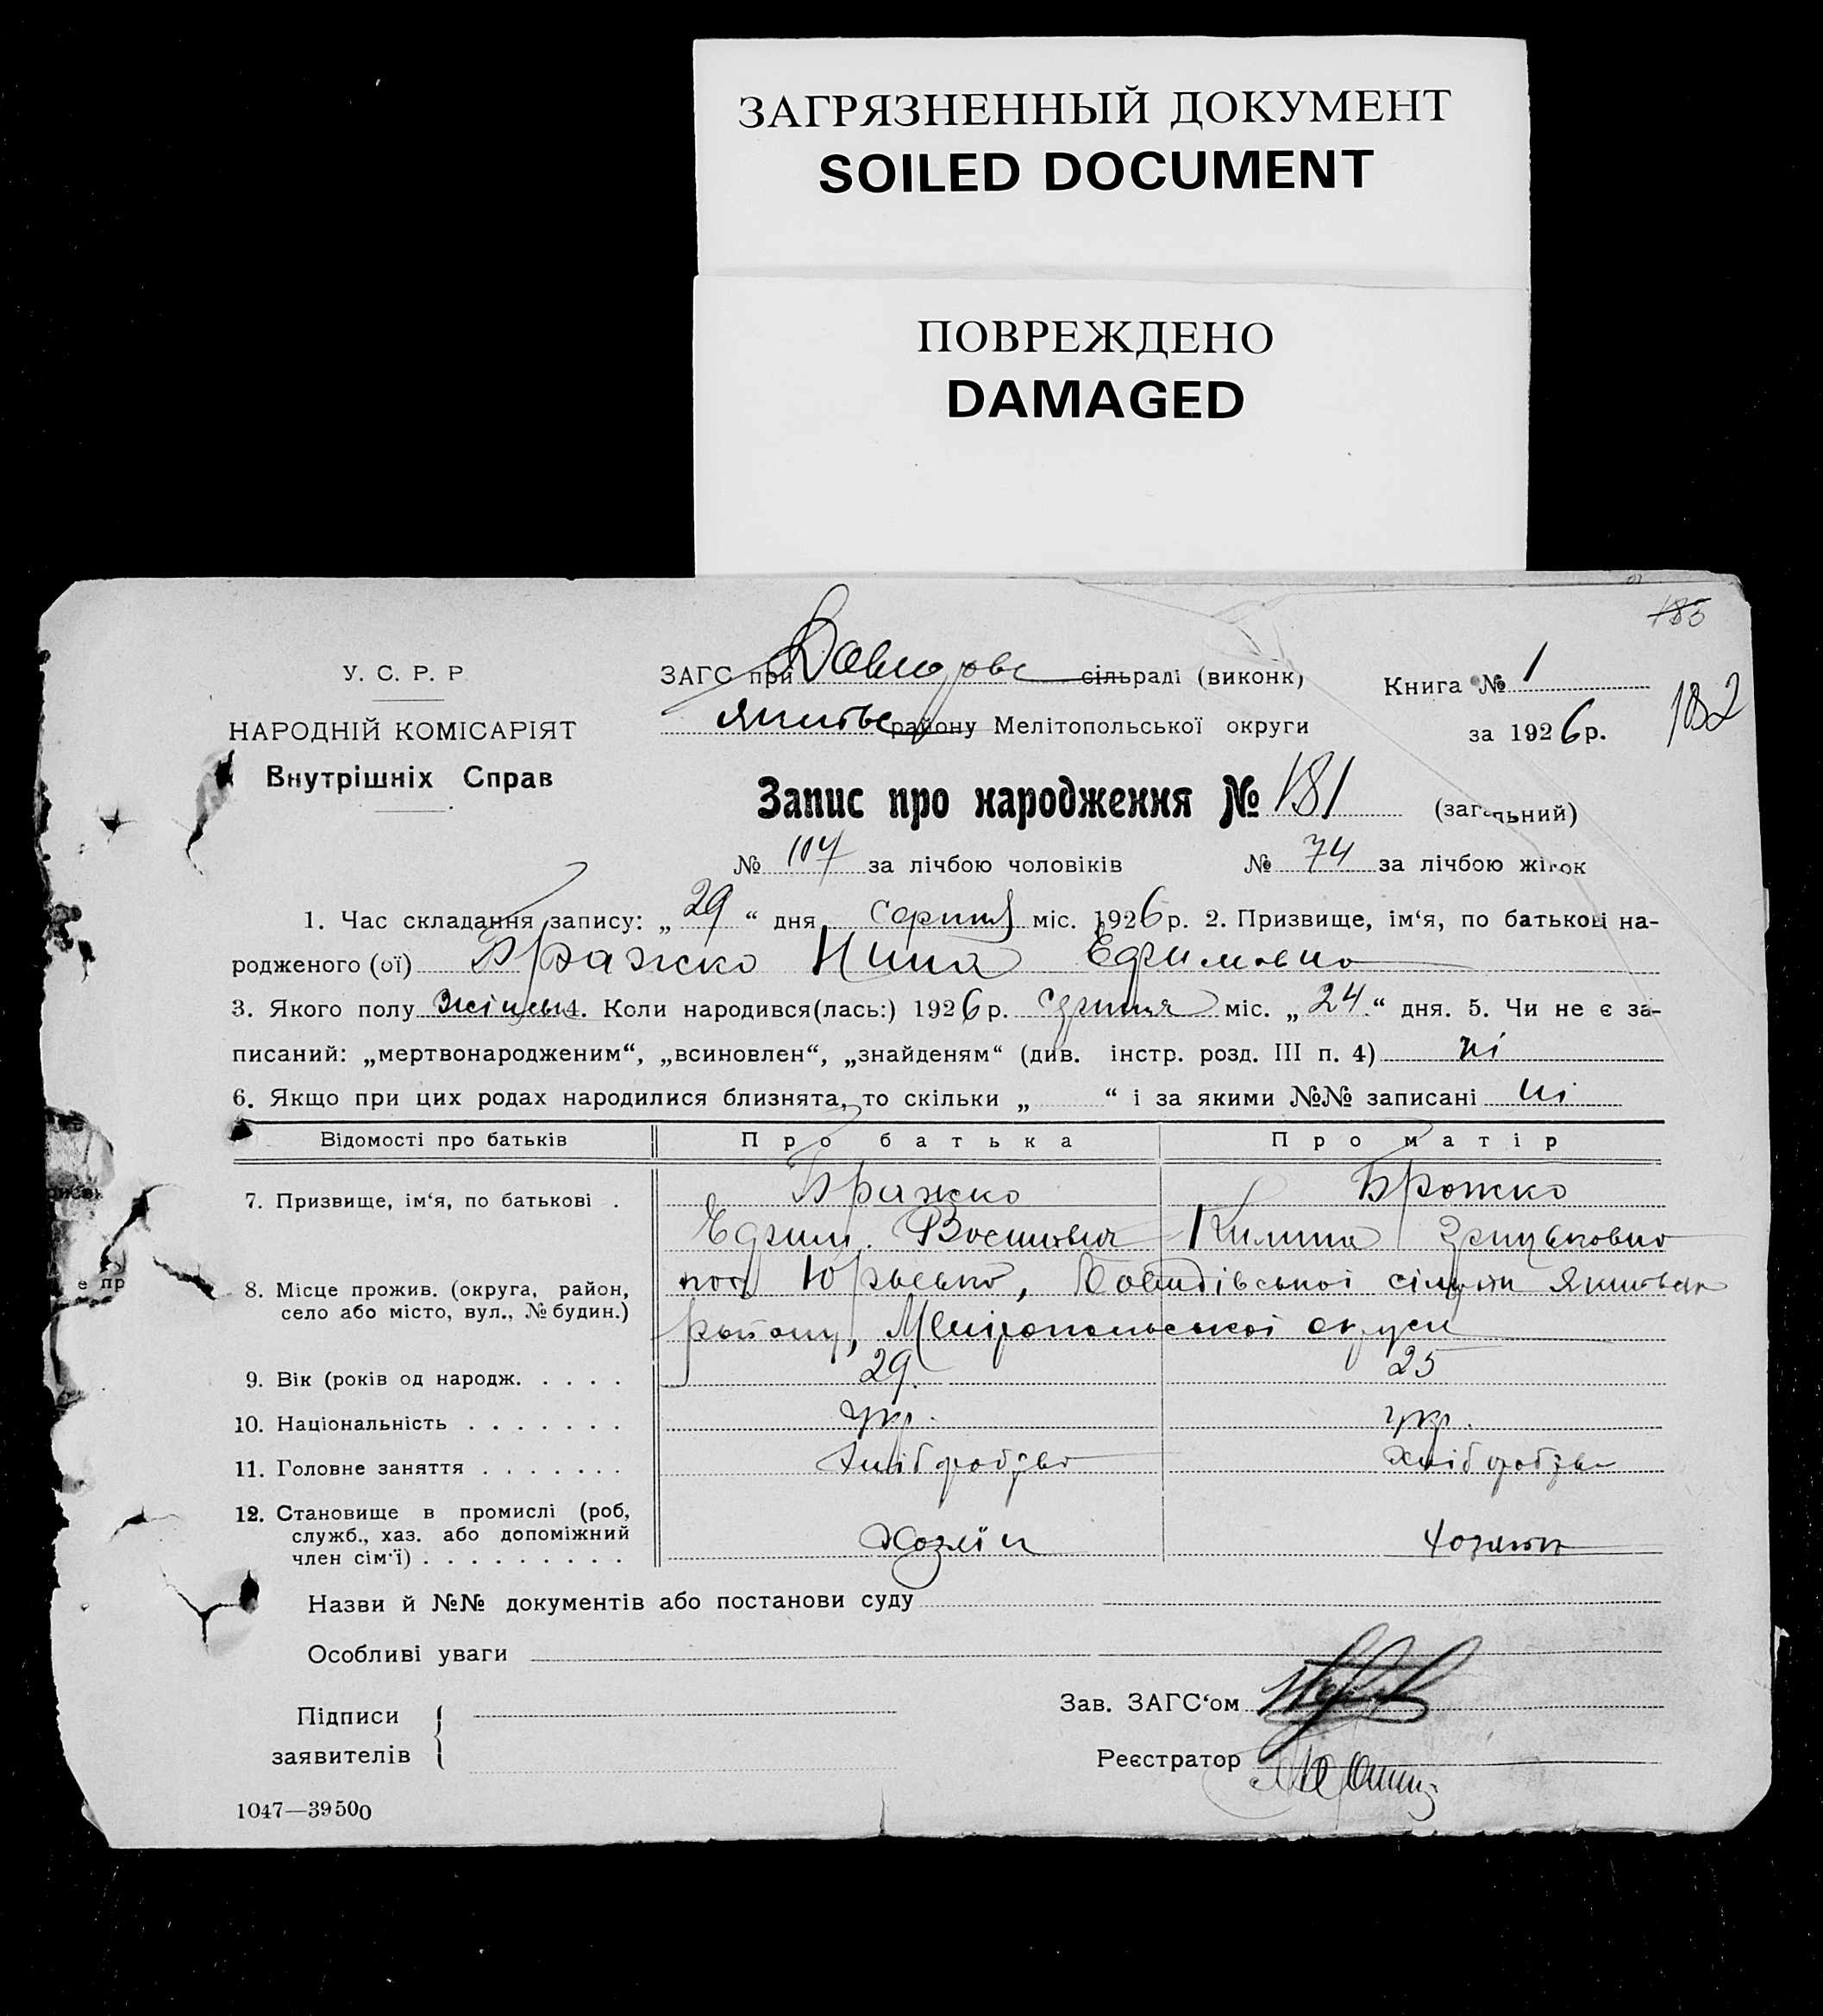 ЗАГРЯЗНЕННЫЙ ДОКУМЕНТ
SOILED DOCUMENT
ПОВРЕЖДЕНО
DAMAGED
185
У. С. Р. Р
НАРОДНІЙ КОМІСАРІЯТ
Внутрішніх Справ
ЗАГС при сільраді (виконк)
району Мелітопольської округи
Книга № 1
за 1926 р.
182
Запис про народження № 181 (загальний)
№ 107 за лічбою чоловіків № 74 за лічбою жінок
1. Час складання запису: „ 29 “ дня серпня міс. 1926 р. 2. Призвище, ім‘я, по батькові на-
родженого (ої) Бражко Нина Ефимовно
3. Якого полу 4. Коли народився(лась:) 1926 р. серпня міс. „ 24 “ дня. 5. Чи не є за-
писаний: „мертвонародженим“, „всиновлен“, „знайденям“ (див. інстр. розд. III п. 4) ні
6. Якщо при цих родах народилися близнята, то скільки „ “ і за якими №№ записані ні
Відомості про батьків Про батька Про матір
7. Призвище, ім‘я, по батькові . Бражко Бражко
Ефим
8. Місце прожив. (округа, район,
село або місто, вул., № будин.)
району, Мелітопольської округи
9. Вік (років од народж. . . . . 29 25
10. Національність . . . . . . . укр. укр.
11. Головне заняття . . . . . . . Хлібробство хлібробство
12. Становище в промислі (роб,
служб., хаз. або допоміжний
член сім‘ї) . . . . . . . . . Хозяїн
Назви й №№ документів або постанови суду
Особливі уваги
Підписи
заявителів
Зав. ЗАГС‘ом
Реєстратор
1047—39500